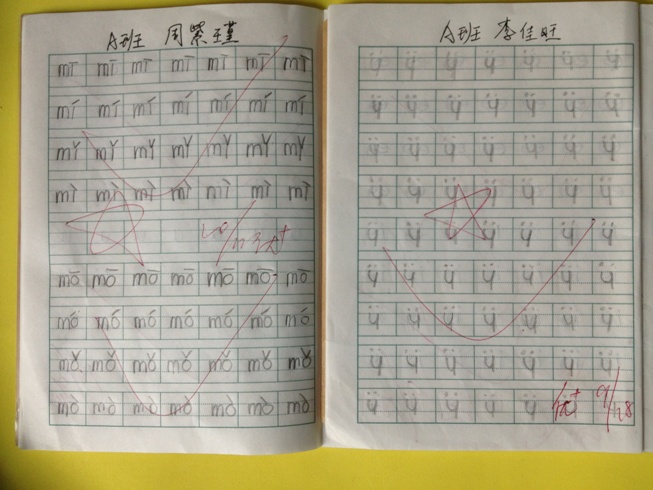 A班 周紫瑾
mī mī mī mī mī mī mī
mí mí mí mí mí mí mí
mǐ mǐ mǐ mǐ mǐ mǐ mǐ
mì mì mì mì mì mì mì
mō mō mō mō mō mō mō
mó mó mó mó mó mó mó
mǒ mǒ mǒ mǒ mǒ mǒ mǒ
mò mò mò mò mò mò mò
A班 李佳旺
ü ü ü ü ü ü ü
ü ü ü ü ü ü ü
ü ü ü ü ü ü ü
ü ü ü ü ü ü ü
ü ü ü ü ü ü ü
ü ü ü ü ü ü ü
ü ü ü ü ü ü ü
ü ü ü ü ü ü ü
ü ü ü ü ü ü ü
优+